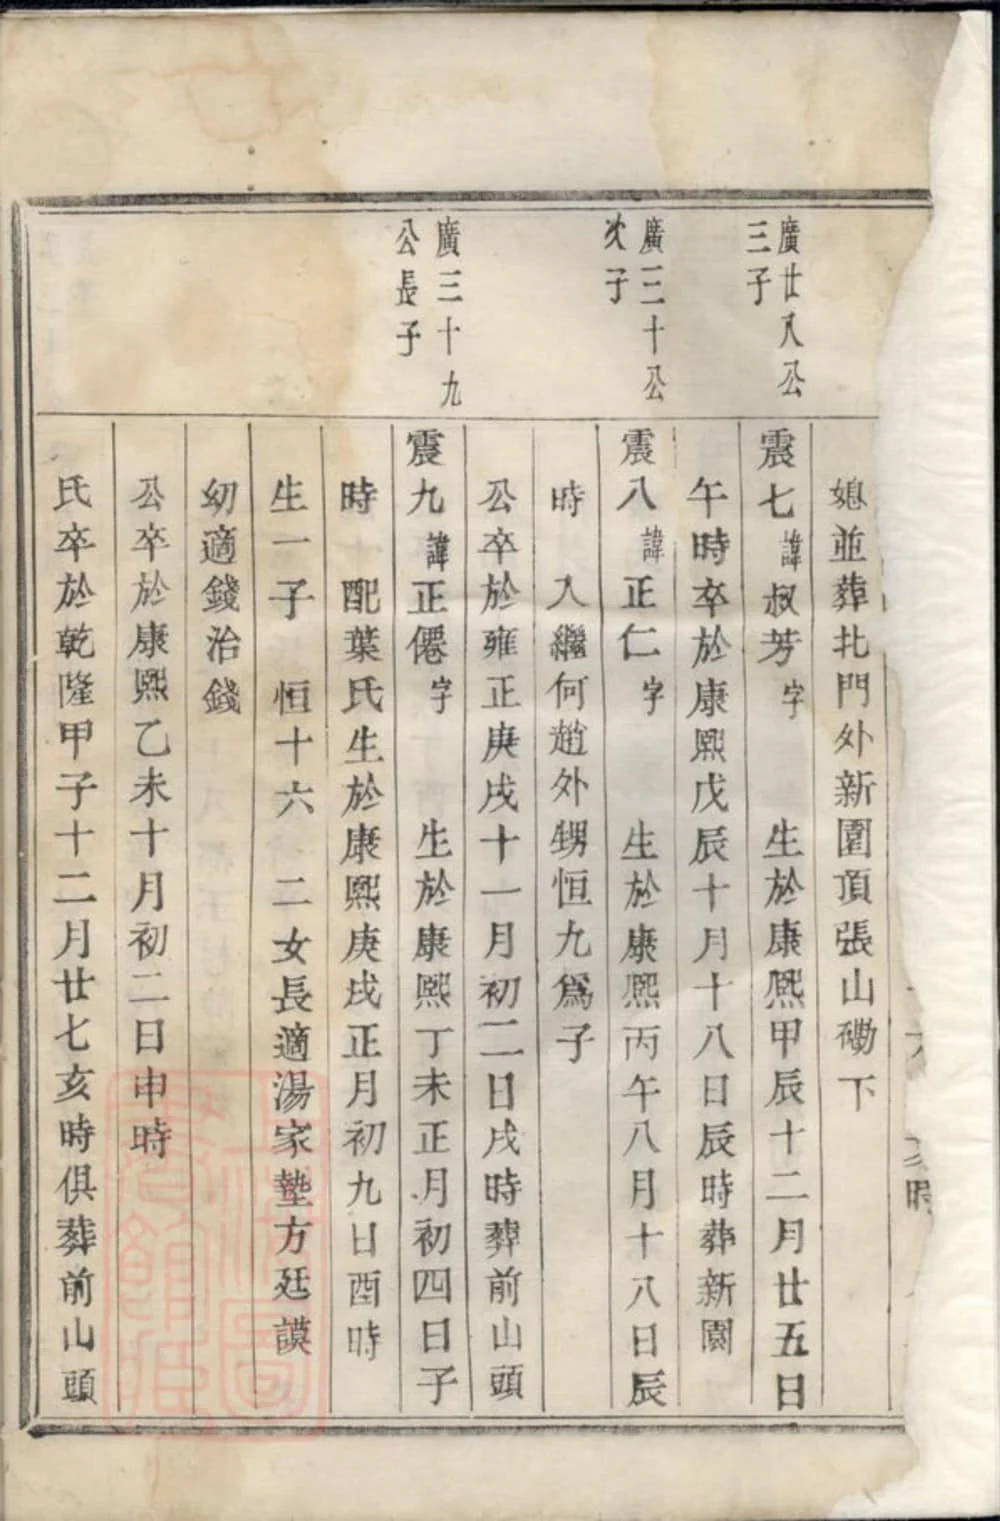 媳並葬北門外新園頂張山磡下
廣廿八公
三子
震七諱叔芳字　生於康熙甲辰十二月廿五日
午時卒於康熙戊辰十月十八日辰時葬新園
廣三十公
次子
震八諱正仁字　生於康熙丙午八月十八日辰
時　入繼何趙外甥恒九爲子
公卒於雍正庚戌十一月初二日戌時葬前山頭
廣三十九
公長子
震九諱正僊字　生於康熙丁未正月初四日子
時　配葉氏生於康熙庚戌正月初九日酉時
生一子　恒十六　二女長適湯家墊方廷謨
幼適錢治錢
公卒於康熙乙未十月初二日申時
氏卒於乾隆甲子十二月廿七亥時俱葬前山頭